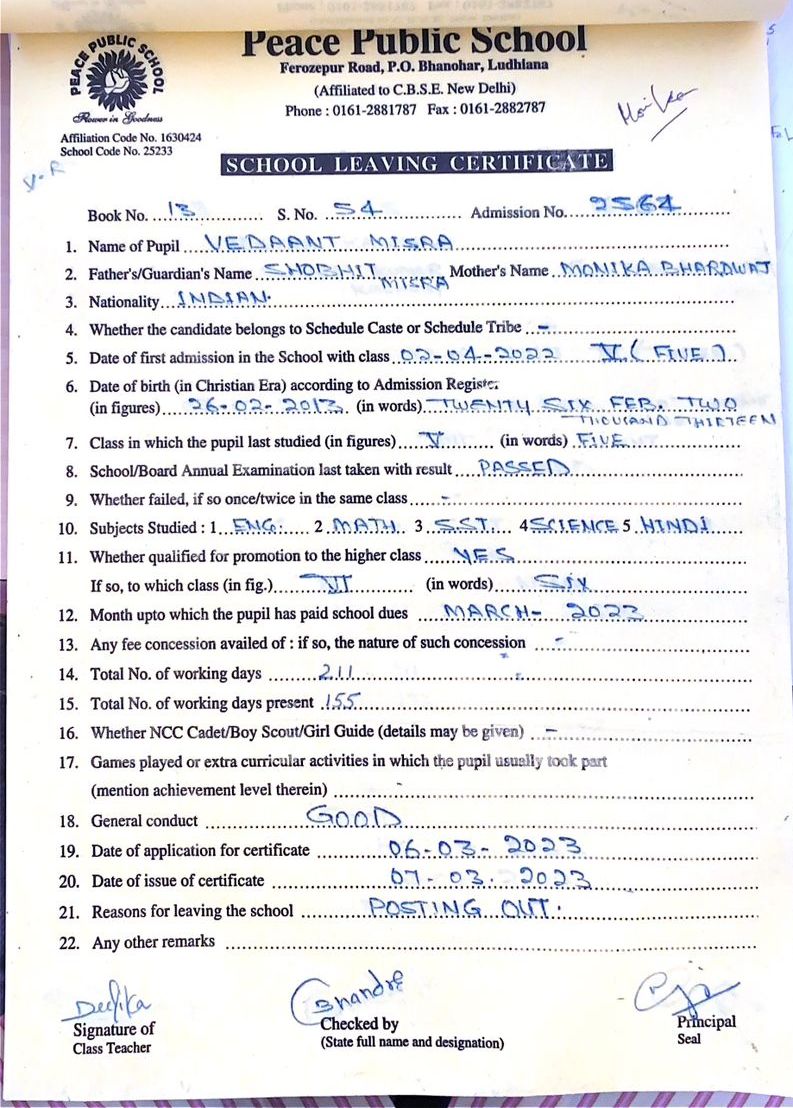 PEACE PUBLIC SCHOOL
Flower in Goodness
Affiliation Code No. 1630424
School Code No. 25233
Peace Public School
Ferozepur Road, P.O. Bhanohar, Ludhiana
(Affiliated to C.B.S.E. New Delhi)
Phone : 0161-2881787 Fax : 0161-2882787
Monika
V.R
SCHOOL LEAVING CERTIFICATE
Book No. 13 S. No. 54 Admission No. 2564
1. Name of Pupil VEDAANT MISRA
2. Father's/Guardian's Name SHOBHIT MISRA Mother's Name MONIKA BHARDWAJ
3. Nationality INDIAN.
4. Whether the candidate belongs to Schedule Caste or Schedule Tribe -
5. Date of first admission in the School with class 02-04-2022 V (FIVE)
6. Date of birth (in Christian Era) according to Admission Register
(in figures) 26-02-2013 (in words) TWENTY SIX FEB. TWO
THOUSAND THIRTEEN
7. Class in which the pupil last studied (in figures) V (in words) FIVE
8. School/Board Annual Examination last taken with result PASSED
9. Whether failed, if so once/twice in the same class -
10. Subjects Studied : 1 ENG. 2 MATH 3 S.S.T. 4 SCIENCE 5 HINDI
11. Whether qualified for promotion to the higher class YES
If so, to which class (in fig.) VI (in words) SIX
12. Month upto which the pupil has paid school dues MARCH- 2023
13. Any fee concession availed of : if so, the nature of such concession -
14. Total No. of working days 211
15. Total No. of working days present 155
16. Whether NCC Cadet/Boy Scout/Girl Guide (details may be given) -
17. Games played or extra curricular activities in which the pupil usually took part
(mention achievement level therein) -
18. General conduct GOOD
19. Date of application for certificate 06-03-2023
20. Date of issue of certificate 07-03.2023
21. Reasons for leaving the school POSTING OUT.
22. Any other remarks
Deepika
Signature of
Class Teacher
Checked by
(State full name and designation)
Principal
Seal